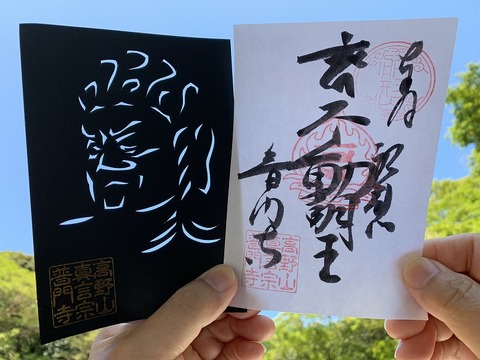 高野山
眞言宗
普門寺
奉拝
不動明王
普門寺
高野山
眞言宗
普門寺